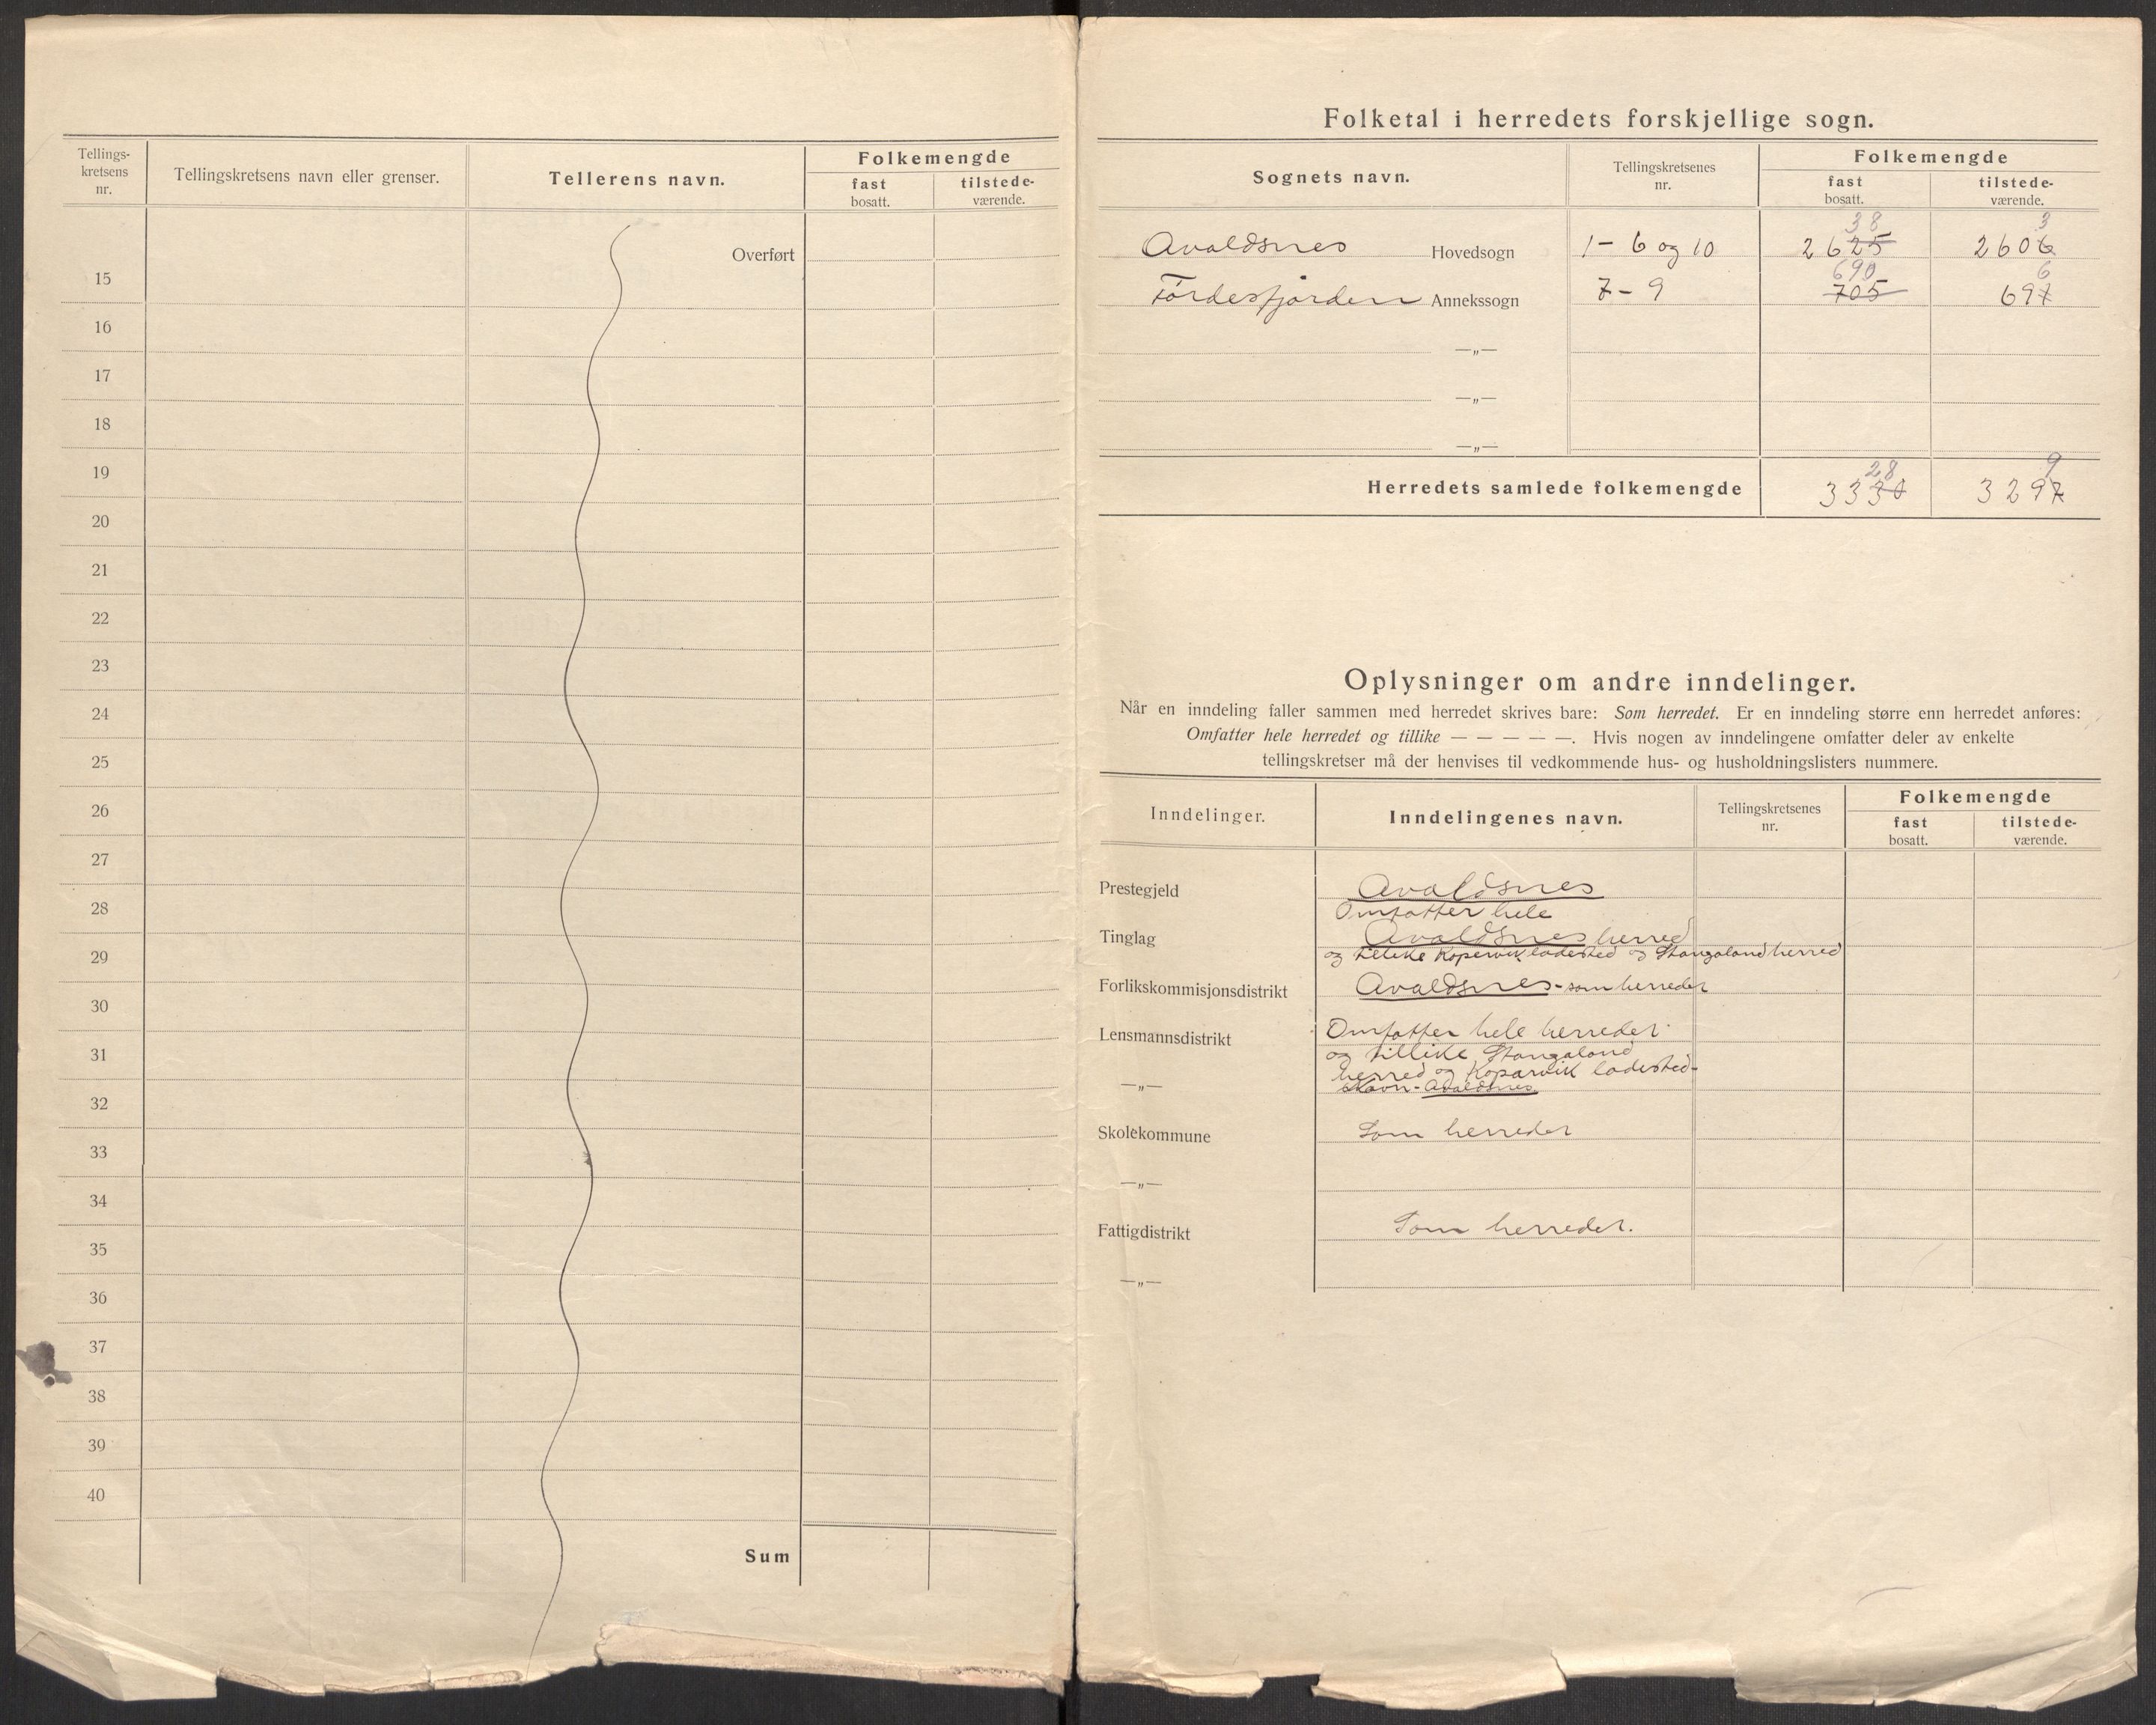 Tellings-
kretsens
nr.
Tellingskretsens navn eller grenser.
Tellerens navn.
Folkemengde
fast
bosatt.
tilstede-
værende.
Overført
15
16
17
18
19
20
21
22
23
24
25
26
27
28
29
30
31
32
33
34
35
36
37
38
39
40
Sum
Folketal i herredets forskjellige sogn.
Sognets navn.
Tellingskretsenes
nr.
Folkemengde
fast
bosatt.
tilstede-
værende.
38 3
Avaldsnes Hovedsogn 1 - 6 og 10 2625 2606
690 6
Førdesfjorden Annekssogn 7 - 9 705 697
—„—
—„—
—„—
28 9
Herredets samlede folkemengde 3330 3297
Oplysninger om andre inndelinger.
Når en inndeling faller sammen med herredet skrives bare: Som herredet. Er en inndeling større enn herredet anføres:
Omfatter hele herredet og tillike — — — — —. Hvis nogen av inndelingene omfatter deler av enkelte
tellingskretser må der henvises til vedkommende hus- og husholdningslisters nummere.
Inndelinger.
Inndelingenes navn.
Tellingskretsenes
nr.
Folkemengde
fast
bosatt.
tilstede-
værende.
Prestegjeld Avaldsnes
Omfatter hele
Tinglag Avaldsnes herred
og tillike Kopervik ladested og Stangaland herred
Forlikskommisjonsdistrikt Avaldsnes - som herredet
Lensmannsdistrikt Omfatter hele herredet
og tillike Stangaland
herred og Kopervik ladested -
—„— Navn - Avaldsnes
Skolekommune Som herredet
—„—
Fattigdistrikt Som herredet.
—„—